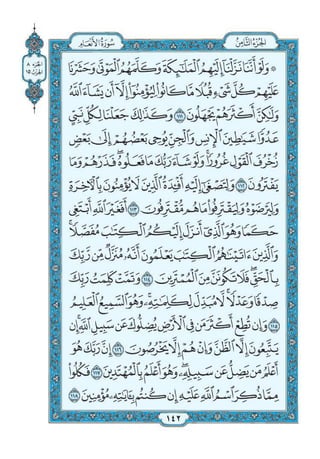 الجزء الثامن
سورة الأنعام
الجزء ٨
الحزب ١٥
۞ وَلَوْ أَنَّنَا نَزَّلْنَا إِلَيْهِمُ ٱلْمَلَٰٓئِكَةَ وَكَلَّمَهُمُ ٱلْمَوْتَىٰ وَحَشَرْنَا
عَلَيْهِمْ كُلَّ شَىْءٍ قُبُلًا مَّا كَانُوا۟ لِيُؤْمِنُوٓا۟ إِلَّآ أَن يَشَآءَ ٱللَّهُ
وَلَٰكِنَّ أَكْثَرَهُمْ يَجْهَلُونَ ١١١ وَكَذَٰلِكَ جَعَلْنَا لِكُلِّ نَبِىٍّ
عَدُوًّا شَيَٰطِينَ ٱلْإِنسِ وَٱلْجِنِّ يُوحِى بَعْضُهُمْ إِلَىٰ بَعْضٍ
زُخْرُفَ ٱلْقَوْلِ غُرُورًا ۚ وَلَوْ شَآءَ رَبُّكَ مَا فَعَلُوهُ ۖ فَذَرْهُمْ وَمَا
يَفْتَرُونَ ١١٢ وَلِتَصْغَىٰٓ إِلَيْهِ أَفْـِٔدَةُ ٱلَّذِينَ لَا يُؤْمِنُونَ بِٱلْءَاخِرَةِ
وَلِيَرْضَوْهُ وَلِيَقْتَرِفُوا۟ مَا هُم مُّقْتَرِفُونَ ١١٣ أَفَغَيْرَ ٱللَّهِ أَبْتَغِى
حَكَمًا وَهُوَ ٱلَّذِىٓ أَنزَلَ إِلَيْكُمُ ٱلْكِتَٰبَ مُفَصَّلًا ۚ
وَٱلَّذِينَ ءَاتَيْنَٰهُمُ ٱلْكِتَٰبَ يَعْلَمُونَ أَنَّهُۥ مُنَزَّلٌ مِّن رَّبِّكَ
بِٱلْحَقِّ ۖ فَلَا تَكُونَنَّ مِنَ ٱلْمُمْتَرِينَ ١١٤ وَتَمَّتْ كَلِمَتُ رَبِّكَ
صِدْقًا وَعَدْلًا ۚ لَّا مُبَدِّلَ لِكَلِمَٰتِهِۦ ۚ وَهُوَ ٱلسَّمِيعُ ٱلْعَلِيمُ
١١٥ وَإِن تُطِعْ أَكْثَرَ مَن فِى ٱلْأَرْضِ يُضِلُّوكَ عَن سَبِيلِ ٱللَّهِ ۚ إِن
يَتَّبِعُونَ إِلَّا ٱلظَّنَّ وَإِنْ هُمْ إِلَّا يَخْرُصُونَ ١١٦ إِنَّ رَبَّكَ هُوَ
أَعْلَمُ مَن يَضِلُّ عَن سَبِيلِهِۦ ۖ وَهُوَ أَعْلَمُ بِٱلْمُهْتَدِينَ ١١٧ فَكُلُوا۟
مِمَّا ذُكِرَ ٱسْمُ ٱللَّهِ عَلَيْهِ إِن كُنتُم بِـَٔايَٰتِهِۦ مُؤْمِنِينَ ١١٨
١٤٢